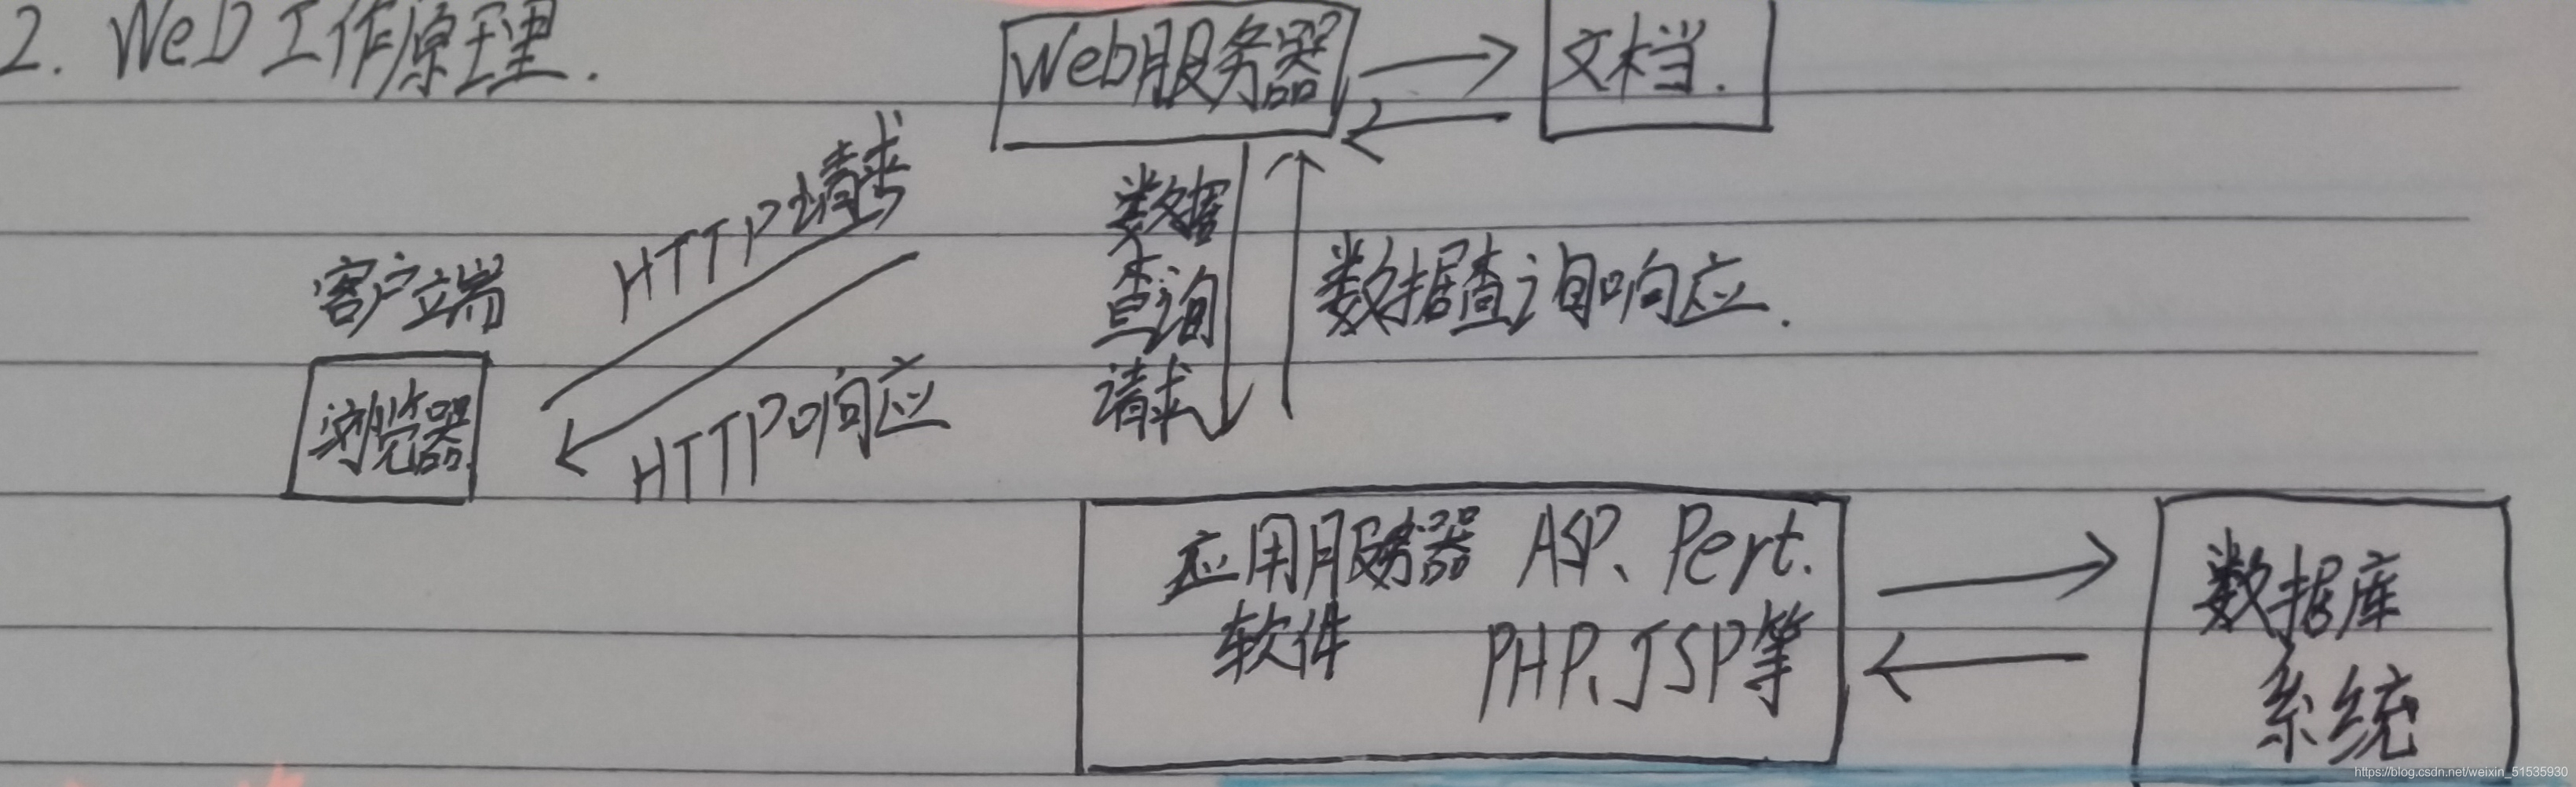 2. Web工作原理.
Web服务器
文档.
HTTP请求
数据
查询
请求
数据查询响应.
客户端
浏览器
HTTP响应
应用服务器 ASP、Pert.
软件 PHP、JSP等
数据库
系统
https://blog.csdn.net/weixin_51535930